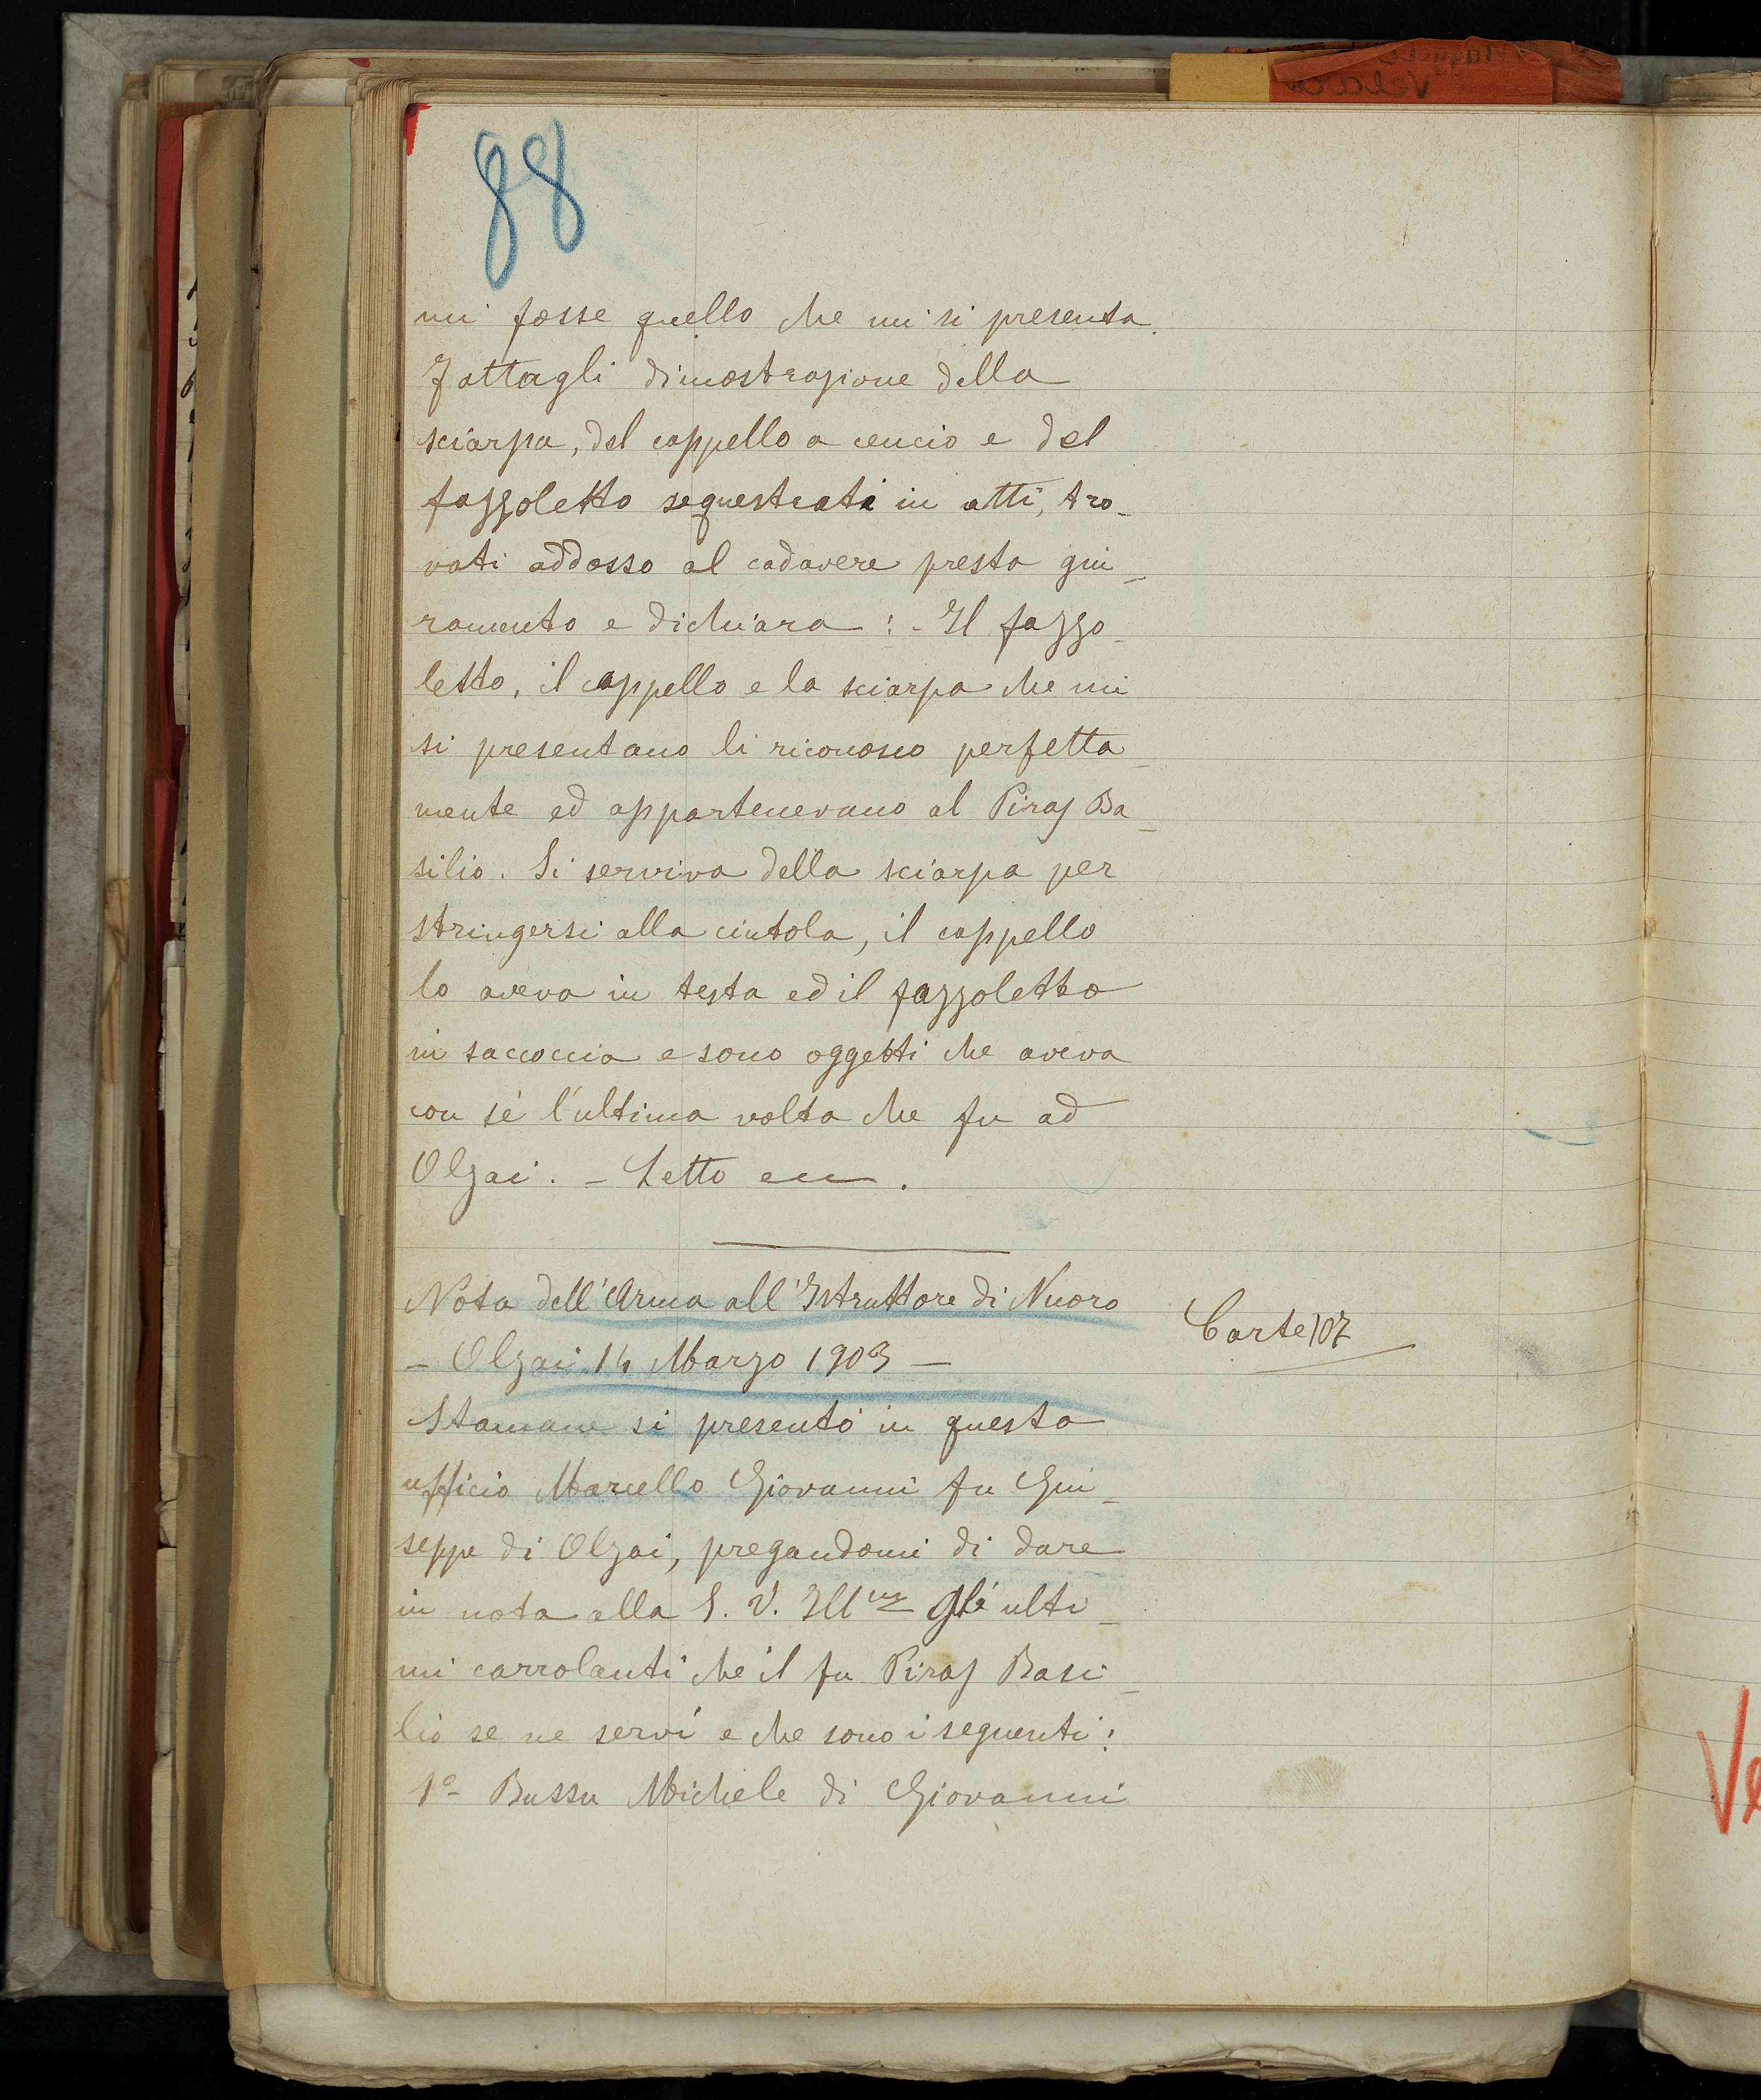 88
mi fosse quello che mi si presenta.
Fattagli dimostrazione della
sciarpa, del cappello a cencio e del
fazzoletto sequestrati in atti, tro_
vati addosso al cadavere presta giu_
ramento e dichiara: - Il fazzo_
letto, il cappello e la sciarpa che mi
si presentano li riconosco perfetta_
mente ed appartenevano al Piras Ba_
silio. Si serviva della sciarpa per
stringersi alla cintola, il cappello
lo aveva in testa ed il fazzoletto
in saccoccia e sono oggetti che aveva
con sé l'ultima volta che fu ad
Olzai. - Letto ecc.
Nota dell'Arma all'Istruttore di Nuoro
- Olzai 14 Marzo 1903 -
Carte 107
Stamane si presentò in questo
ufficio Marcello Giovanni fu Giu_
seppe di Olzai, pregandomi di dare
in nota alla S. V. Ill.ma gli ulti_
mi carrolanti che il fu Piras Basi_
lio se ne servì e che sono i seguenti:
1º- Bussu Michele di Giovanni
Ve